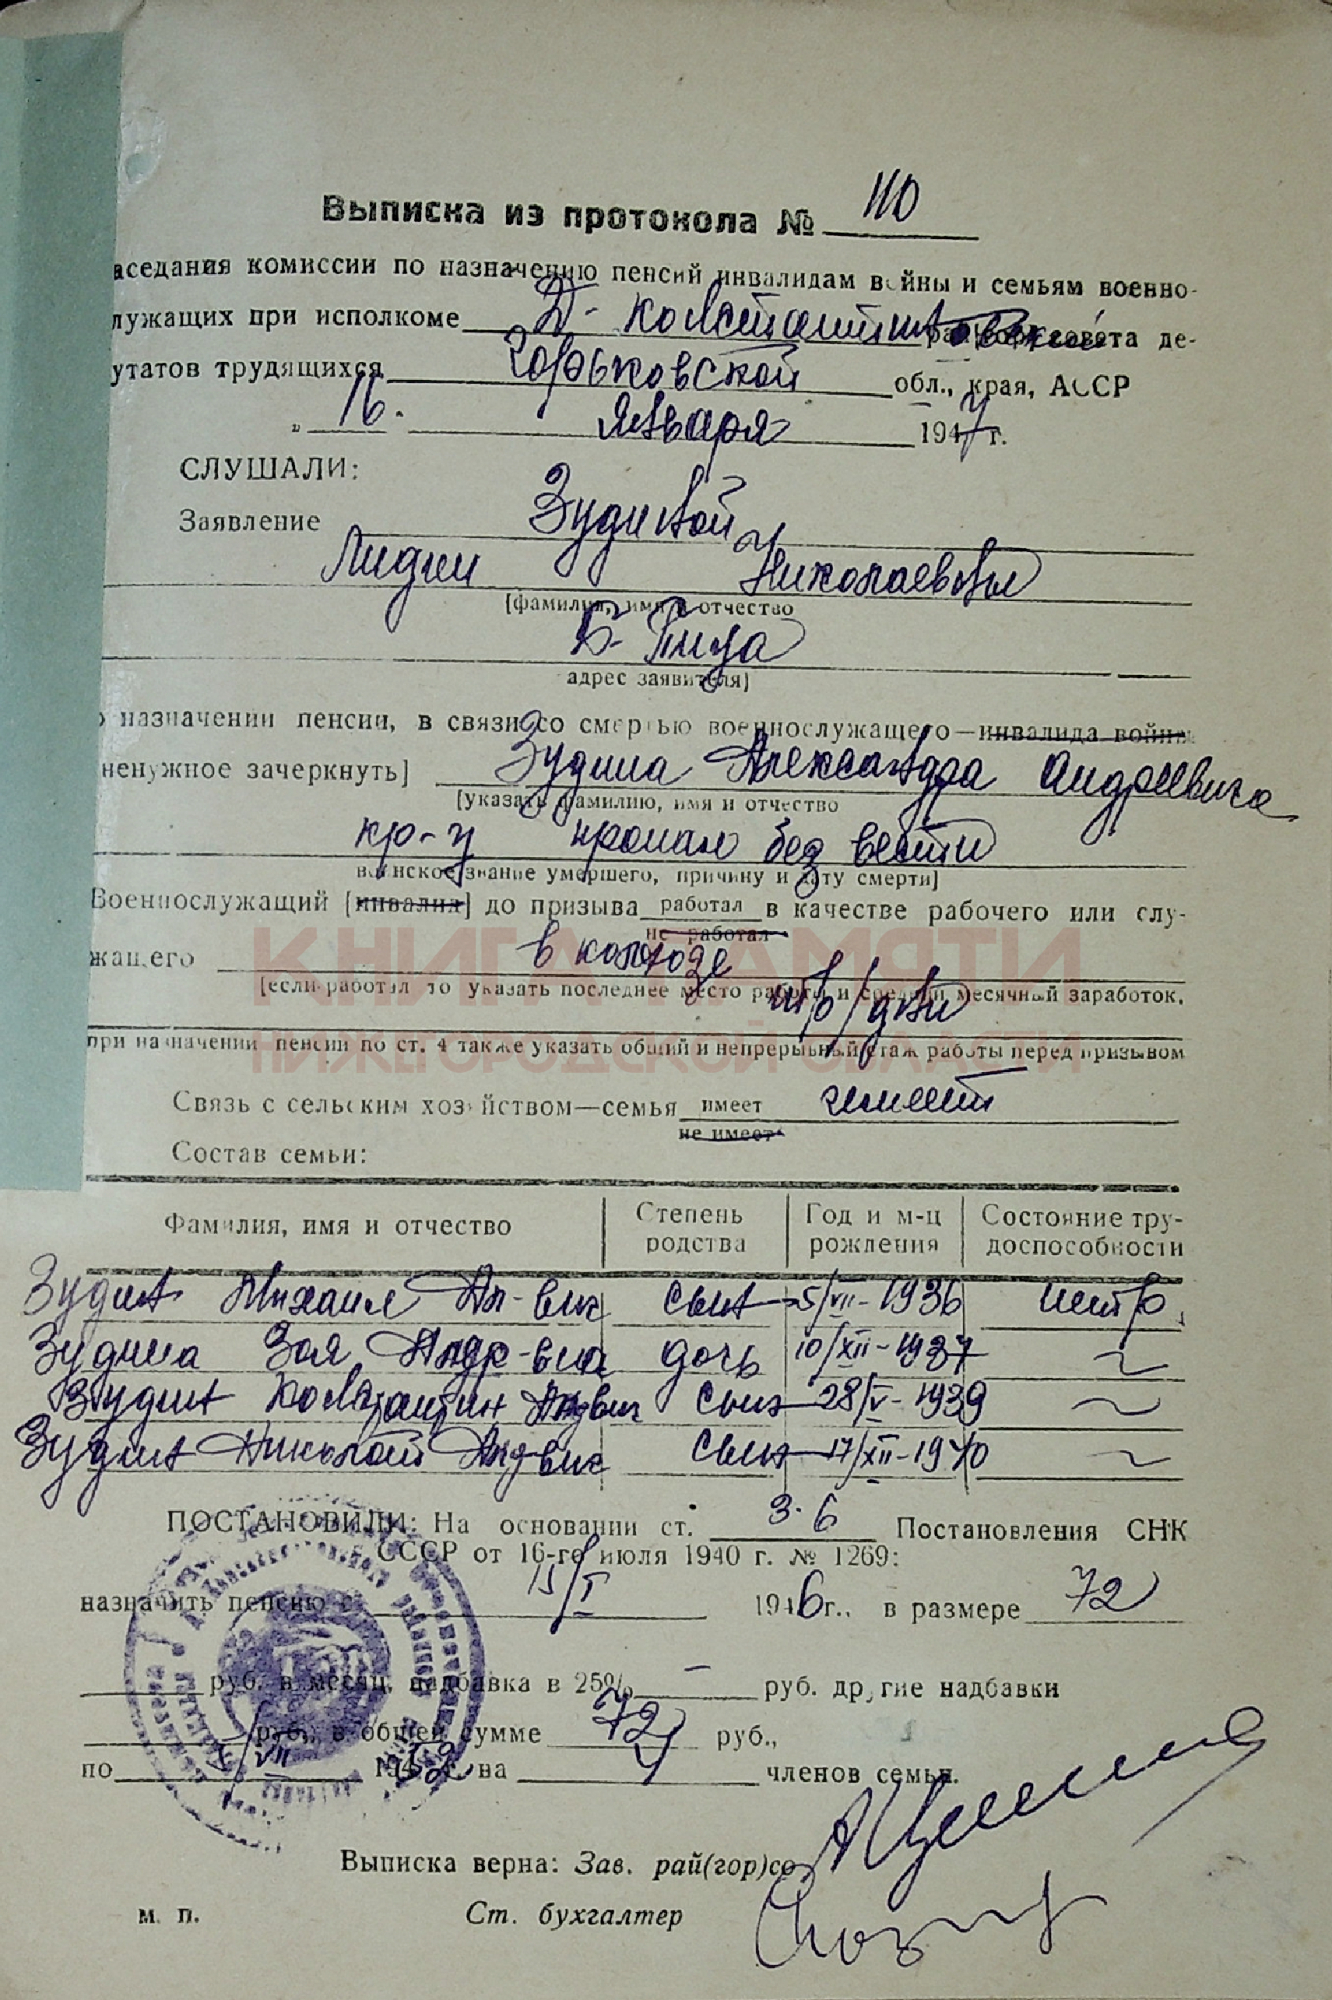 Выписка из протокола № 110
аседания комиссии по назначению пенсий инвалидам войны и семьям военно-
лужащих при исполкоме Д-Константиновской совета де-
утатов трудящихся Горьковской обл., края, АССР
„ 16. января 1947 г.
СЛУШАЛИ:
Заявление Зудиной
Лидии Николаевны
[фамилия, имя и отчество
Б-Пица
адрес заявителя]
о назначении пенсии, в связи со смертью военнослужащего—инвалида войны
ненужное зачеркнуть] Зудина Александра Андреевича
[указать фамилию, имя и отчество
кр-ц пропал без вести
воинское звание умершего, причину и дату смерти]
Военнослужащий [инвалид] до призыва работал в качестве рабочего или слу-
не работал
жащего в колхозе
[если работал то указать последнее место работы и средний месячный заработок,
тр/дни
при назначении пенсии по ст. 4 также указать общий и непрерывный стаж работы перед призывом
Связь с сельским хозяйством—семья имеет имеет
не имеет
Состав семьи:
Фамилия, имя и отчество Степень родства Год и м-ц рождения Состояние тру-доспособности
Зудин Михаил Ал-вич сын 5/VII-1936 нетр.
Зудина Зоя дочь 10/XII-1937 ~
Зудин Константин сын 28/V-1939 ~
Зудин Николай сын 17/XII-1940 ~
ПОСТАНОВИЛИ: На основании ст. 3-6 Постановления СНК
СССР от 16-го июля 1940 г. № 1269:
назначить пенсию с 15/I 1946г., в размере 72
руб. в месяц, надбавка в 25% – руб. другие надбавки
руб., в общей сумме 72 руб.,
по VII 195 на 4 членов семьи.
Выписка верна: Зав. рай(гор)со
м. п. Ст. бухгалтер
КНИГА ПАМЯТИ
НИЖЕГОРОДСКОЙ ОБЛАСТИ